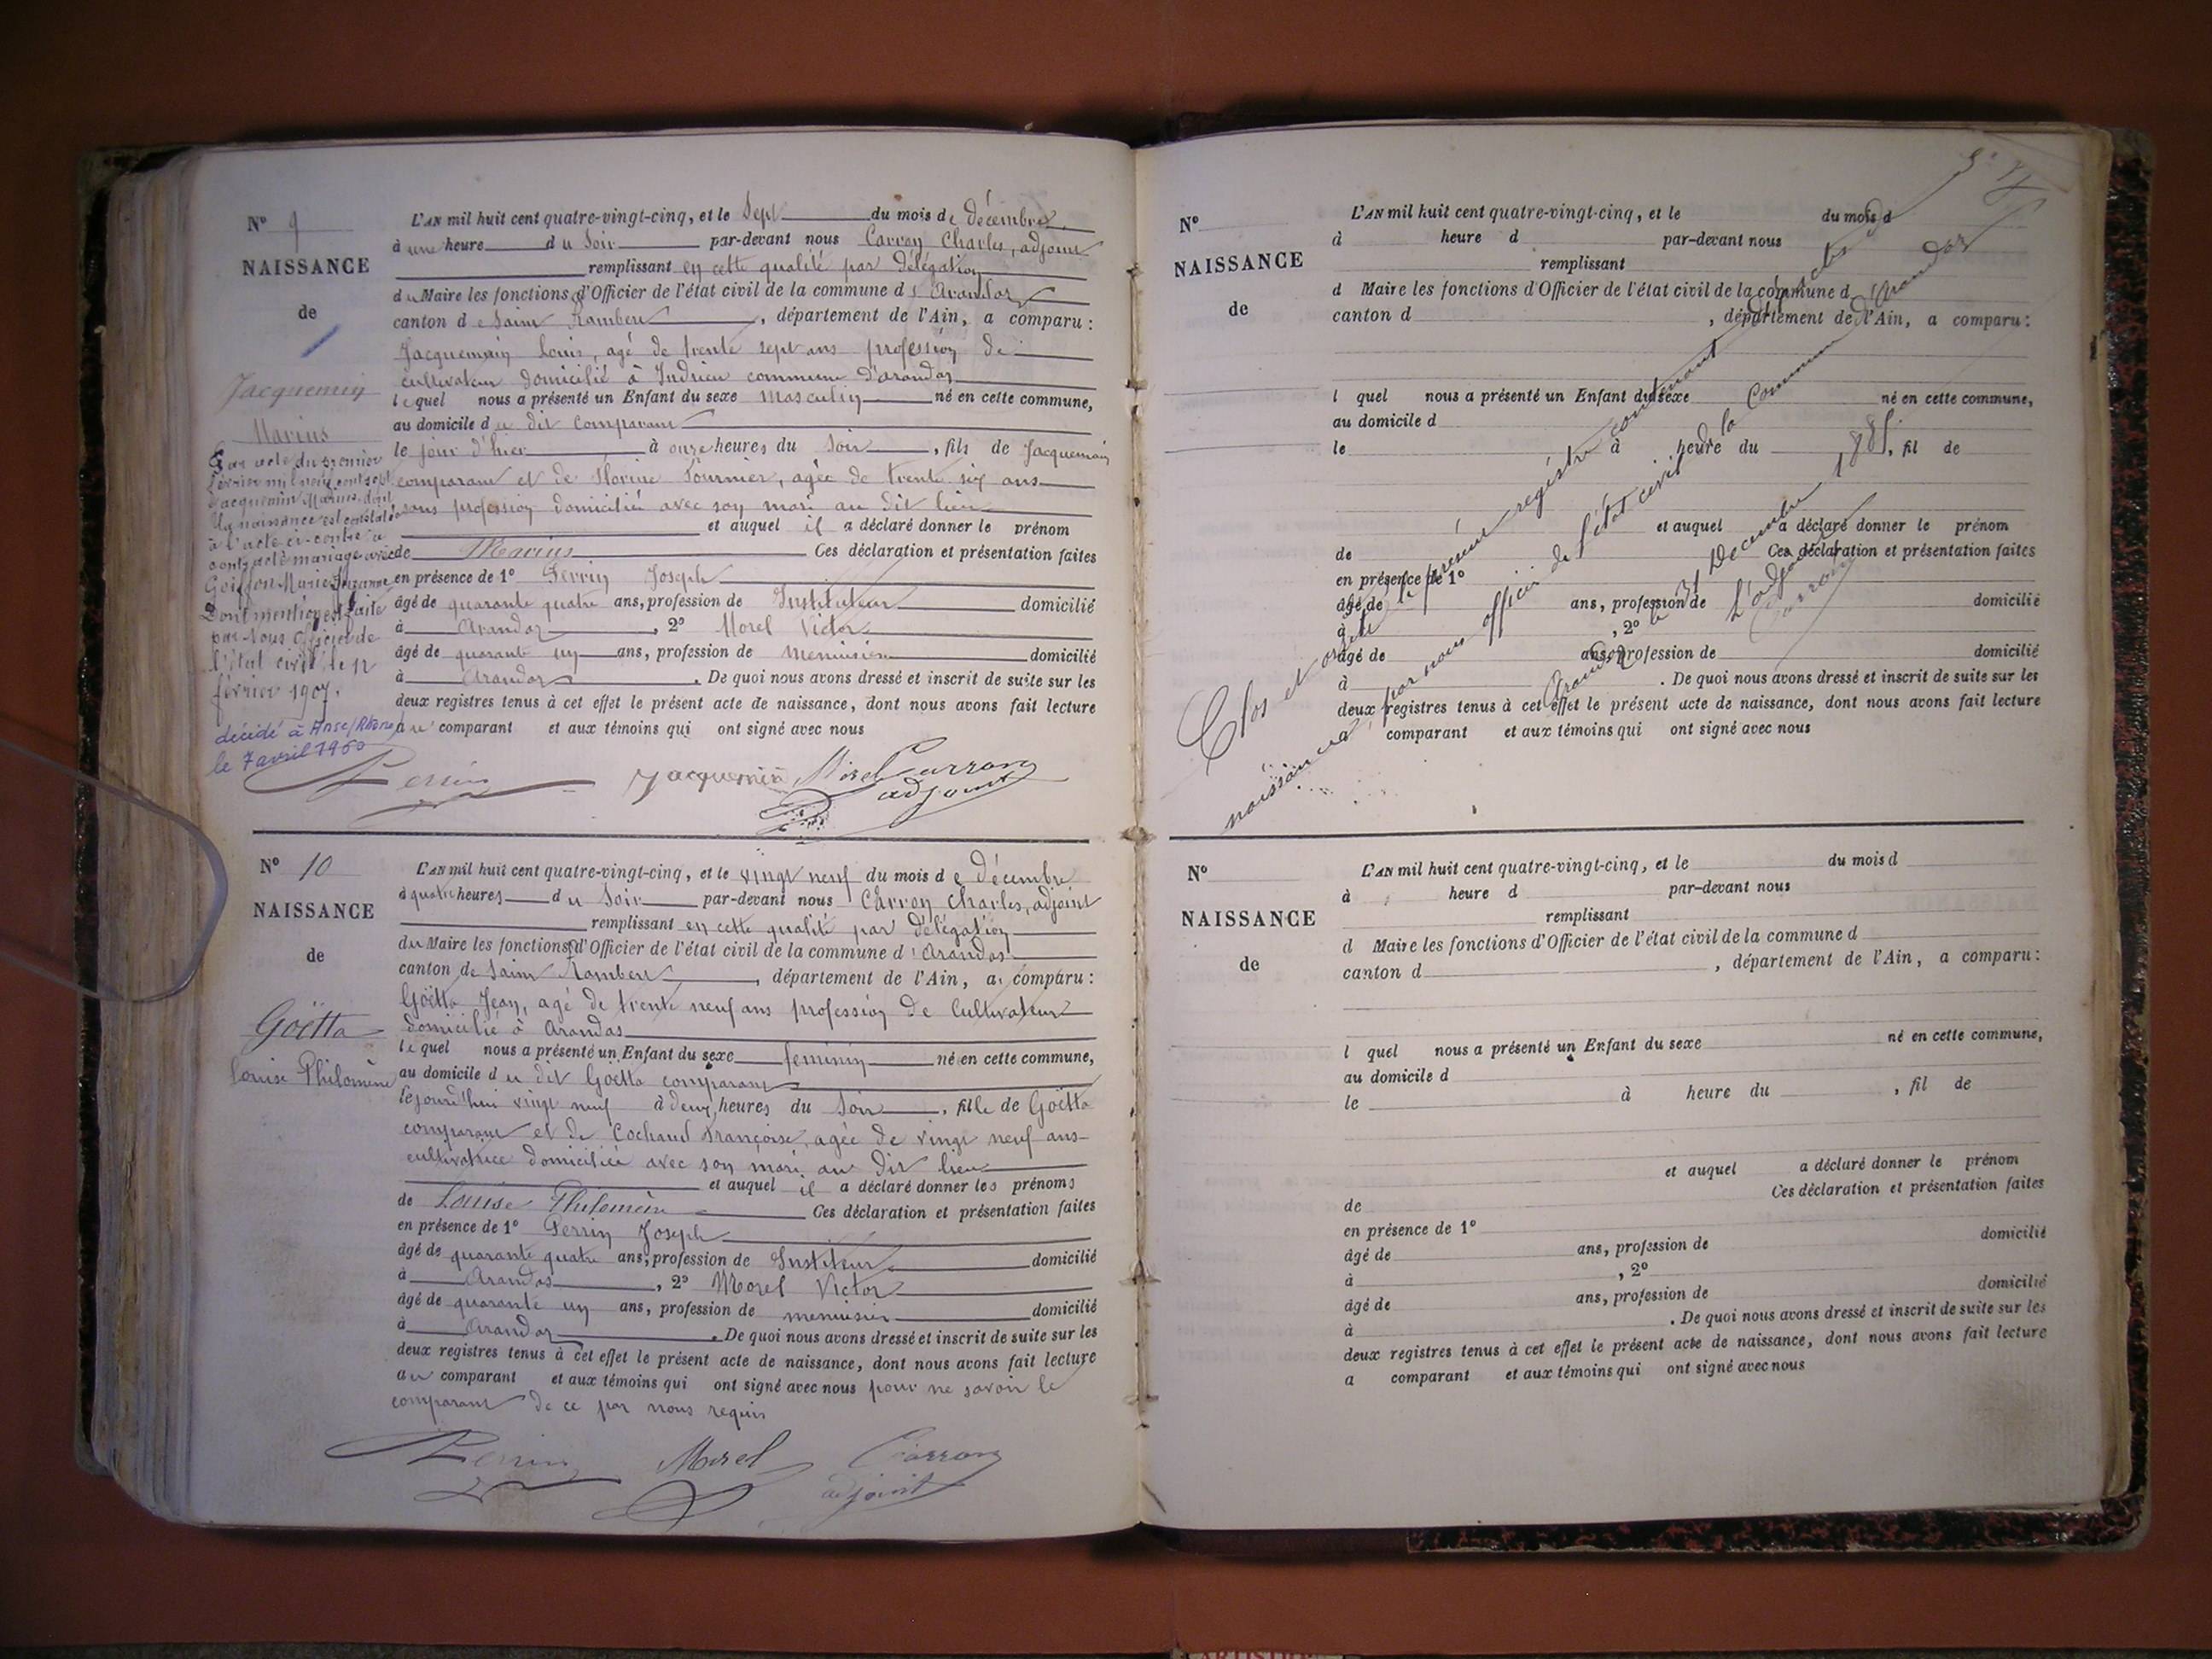 N° 9
NAISSANCE
de
Jacquemin
Marius
Par acte du premier
février mil neuf cent sept
Jacquemin Marius, dont
la naissance est constatée
à l'acte ci-contre a
contracté mariage avec
Goiffon Marie Suzanne
Dont mention est faite
par Nous officier de
l'état civil le
février 1907.
décédé à Anse (Rhône)
le 7 avril 1960
L'AN mil huit cent quatre-vingt-cinq, et le Sept du mois de décembre
à une heure du Soir par-devant nous Carron Charles, adjoint
remplissant en cette qualité par délégation
du Maire les fonctions d'Officier de l'état civil de la commune d'Arandas
canton de Saint Rambert, département de l'Ain, a comparu :
Jacquemin Louis, agé de trente sept ans profession de
cultivateur domicilié à Indrieu commune d'arandas
lequel nous a présenté un Enfant du sexe masculin né en cette commune,
au domicile du dit comparant
le jour d'hier à onze heures du Soir, fils de Jacquemin
comparant et de Fournier, agée de trente six ans
sans profession domiciliée avec son mari au dit lieu
et auquel il a déclaré donner le prénom
de Marius Ces déclaration et présentation faites
en présence de 1° Perrin Joseph
âgé de quarante quatre ans, profession de Instituteur domicilié
à Arandas, 2° Morel Victor
âgé de quarante un ans, profession de menuisier domicilié
à Arandas. De quoi nous avons dressé et inscrit de suite sur les
deux registres tenus à cet effet le présent acte de naissance, dont nous avons fait lecture
au comparant et aux témoins qui ont signé avec nous
Perrin Jacquemin Morel Carron
adjoint
N° 10
NAISSANCE
de
Goëtta
Louise Philomène
L'AN mil huit cent quatre-vingt-cinq, et le vingt neuf du mois de décembre
à quatre heures du Soir par-devant nous Carron Charles, adjoint
remplissant en cette qualité par délégation
du Maire les fonctions d'Officier de l'état civil de la commune d'Arandas
canton de Saint Rambert, département de l'Ain, a comparu :
Goëtta Jean, agé de trente neuf ans profession de Cultivateur
domicilié à Arandas
lequel nous a présenté un Enfant du sexe feminin né en cette commune,
au domicile du dit Goëtta comparant
le jourd'hui vingt neuf à deux heures du Soir, fille de Goëtta
comparant et de Cochaud Françoise, agée de vingt neuf ans
cultivatrice domiciliée avec son mari au dit lieu
et auquel il a déclaré donner les prénoms
de Louise Philomène Ces déclaration et présentation faites
en présence de 1° Perrin Joseph
âgé de quarante quatre ans, profession de Instituteur domicilié
à Arandas, 2° Morel Victor
âgé de quarante un ans, profession de menuisier domicilié
à Arandas. De quoi nous avons dressé et inscrit de suite sur les
deux registres tenus à cet effet le présent acte de naissance, dont nous avons fait lecture
au comparant et aux témoins qui ont signé avec nous pour ne savoir le
comparant de ce par nous requis
Perrin Morel Carron
adjoint
N°
NAISSANCE
de
L'AN mil huit cent quatre-vingt-cinq, et le du mois d
à heure d par-devant nous
remplissant
d Maire les fonctions d'Officier de l'état civil de la commune d
canton d , département de l'Ain, a comparu :
l quel nous a présenté un Enfant du sexe né en cette commune,
au domicile d
le à heure du , fil de
et auquel a déclaré donner le prénom
de Ces déclaration et présentation faites
en présence de 1°
âgé de ans, profession de domicilié
à , 2°
âgé de ans, profession de domicilié
à . De quoi nous avons dressé et inscrit de suite sur les
deux registres tenus à cet effet le présent acte de naissance, dont nous avons fait lecture
a comparant et aux témoins qui ont signé avec nous
Clos et arrêté le présent registre contenant dix actes de
naissance par nous officier de l'état civil de la Commune d'Arandas
Arandas le 31 Décembre 1885.
L'adjoint
Carron
N°
NAISSANCE
de
L'AN mil huit cent quatre-vingt-cinq, et le du mois d
à heure d par-devant nous
remplissant
d Maire les fonctions d'Officier de l'état civil de la commune d
canton d , département de l'Ain, a comparu :
l quel nous a présenté un Enfant du sexe né en cette commune,
au domicile d
le à heure du , fil de
et auquel a déclaré donner le prénom
de Ces déclaration et présentation faites
en présence de 1°
âgé de ans, profession de domicilié
à , 2°
âgé de ans, profession de domicilié
à . De quoi nous avons dressé et inscrit de suite sur les
deux registres tenus à cet effet le présent acte de naissance, dont nous avons fait lecture
a comparant et aux témoins qui ont signé avec nous